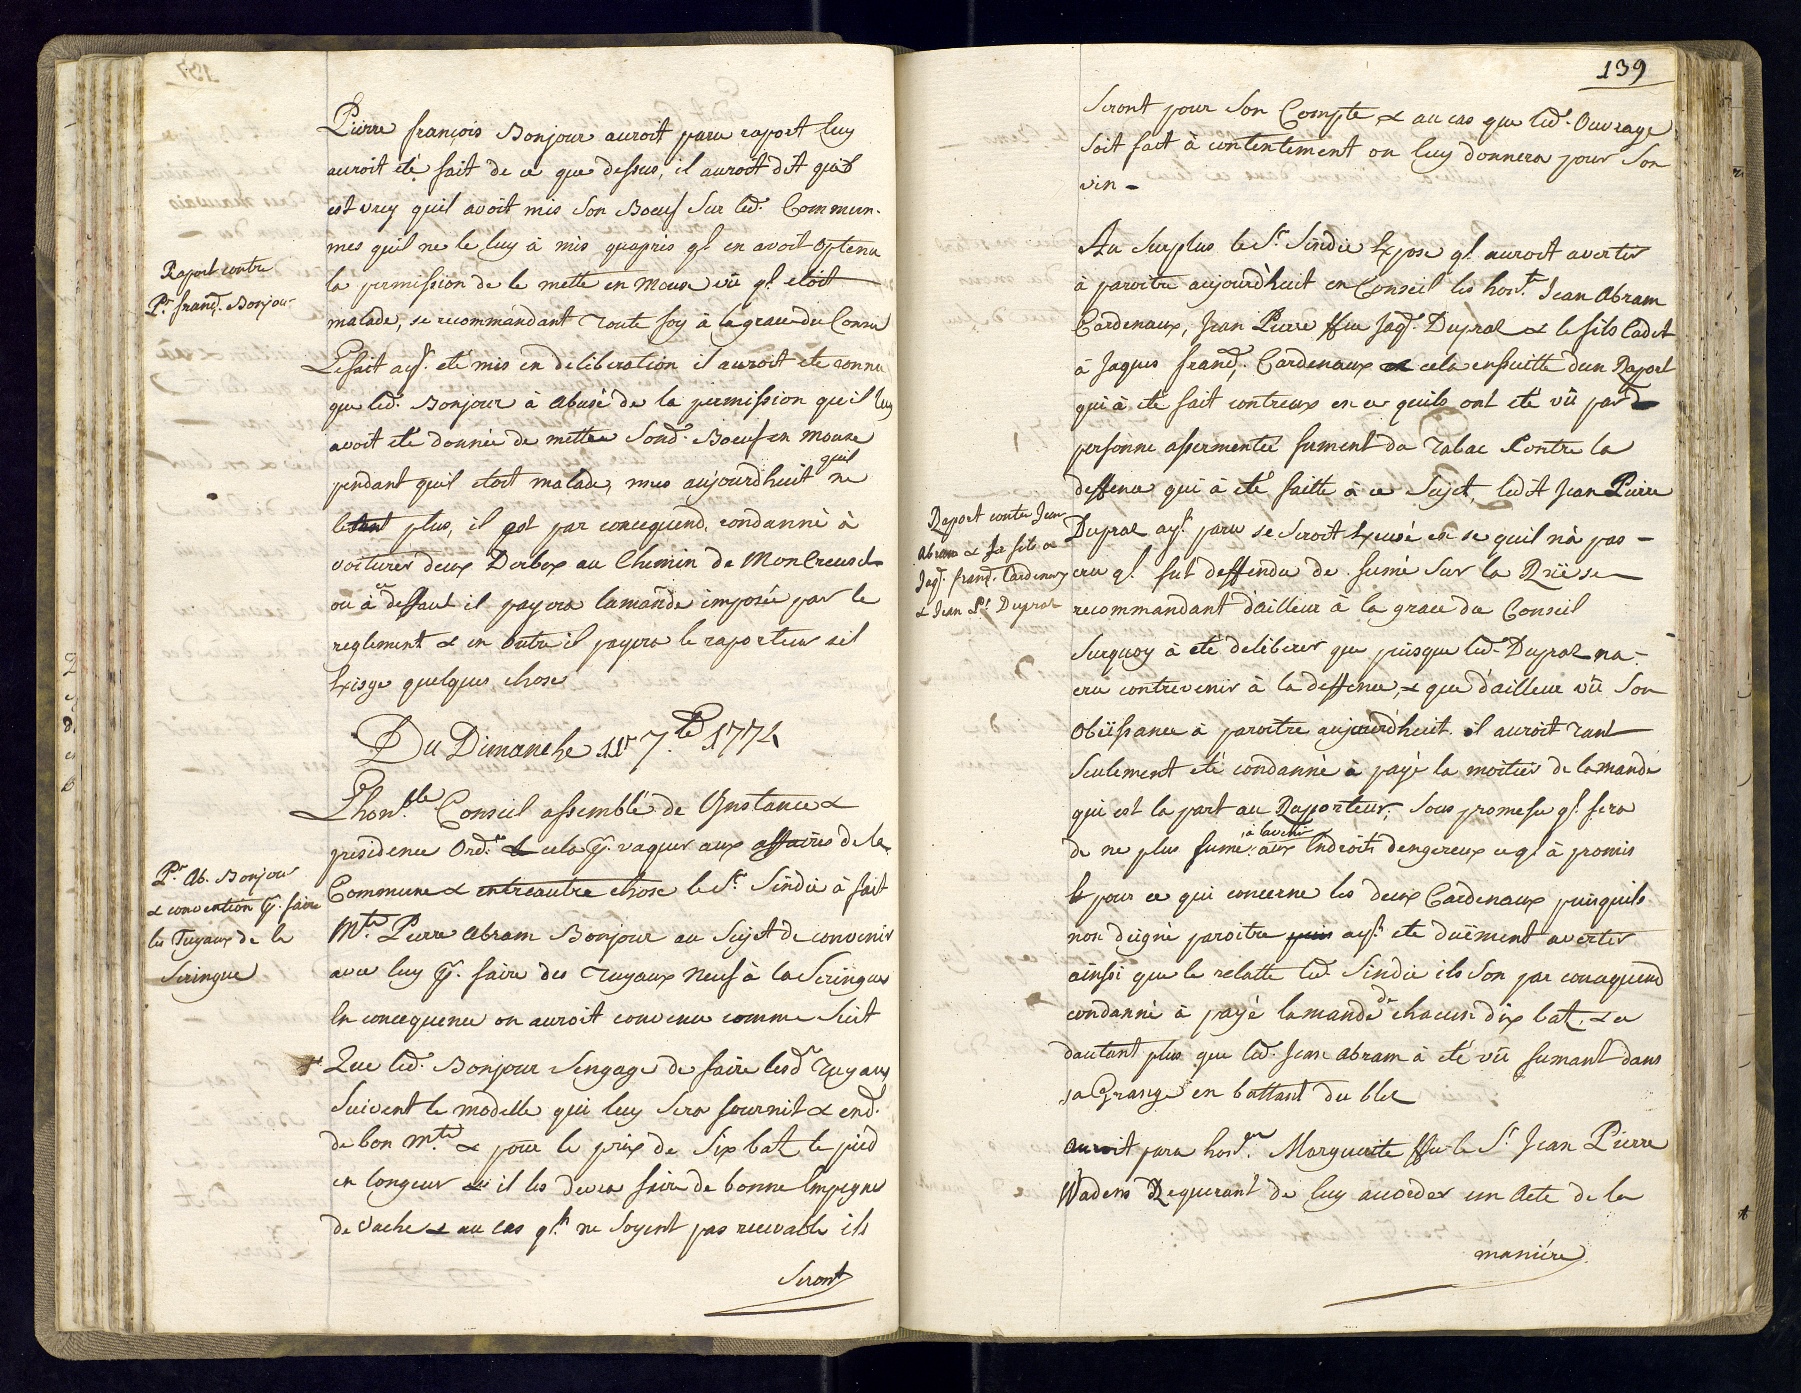 Pierre françois Bonjour auroit paru raport luy
auroit eté fait de ce que dessus, il auroit dit quil
est vray quil avoit mis son Boeuf sur led. Commun.
mes quil ne le luy à mis quapres ql. en avoit optenu
la permission de le mettre en Mouse vû ql. etoit
malade, se recommandant toute foy à la grace du Conseil
Raport contre
Pr. franç. Bonjour
Le fait ayt. eté mis en deliberation il auroit ete connu
que led. Bonjour à abusé de la permission qu'il luy
avoit eté donnée de mettre sond. Boeuf en Mouse
pendant quil etoit malade, mes aujourdhuit quil ne
letant plus, il est par concequend. condanné à
voiturer deux Derbox au Chemin de Moncreuset
ou à ce deffaut il payera lamande imposée par le
reglement & en outre il payera le raporteur sil
Exisge quelques chose
Du Dimanche 11e 7.bre 1774
L'hon.ble Conseil assemblé de Instance &
presidence Ord.re & cela pr. vaquer aux affaires de la
Commune & entreautre chose le Sr. Sindic à fait
Mtre. Pierre Abram Bonjour au sujet de convenir
avec luy pr. faire des Tuyaux neuf à la Seringue
En concequence on auroit convenu comme suit
Pr. Ab. Bonjour
& convention pr. faire
les Tuyaux de la
Seringue
Que led. Bonjour sengage de faire lesd. Tuyaux
suivent le modelle qui luy sera fournit & end.
de bon mtre. & pour le prix de six bat. le pied
en longeur & il les devra faire de bonne Empegne
de vache & au cas qls. ne soyent pas recevable ils
Seront
139
Seront pour son Compte & au cas que led. Ouvrage
soit fait à contentement on luy donnera pour son
vin -
Au surplus le Sr. Sindic Expose ql. auroit averter
à paroitre aujourd'huit en Conseil les hont. Jean Abram
Cardenaux, Jean Pierre ffeu Jaq. Dupraz & le fils Cadet
à Jaques franç. Cardenaux & cela ensuitte dun Raport
qui à eté fait contreux en ce quils ont eté vû par
personne assermentée fument du Tabac Contre la
deffence qui à eté faitte à ce Sujet, ledit Jean Pierre
Dupraz ayt. paru se seroit Excusé en se quil nà pas -
cru ql. fut deffendu de fumé sur la Rüe se
recommandant d'ailleur à la grace du Conseil
Raport contre Jean
Abram & le fils à
Jaq. franç. Cardenaux
& Jean Pr. Dupraz
Surquoy à eté deliberer que puisque led. Dupraz na -
cru contrevenir à la deffence, & que d'ailleur vû son
Obeïssance à paroitre aujourd'huit. il auroit tant
seulement eté condanné à payé la moitier de lamande
qui est la part au Raporteur, sous promesse ql. fera
de ne plus fumé à lavenir aux Endroits dengereux ce ql. à promis
Et pour ce qui concerne les deux Cardenaux puisquils
non deigné paroitre ayt. ete duëment averter
ainsi que le relatte led. Sindic ils son par concequend
condanné à payé lamande de chacun dix bat. & ce
dautant plus que led. Jean Abram à eté vû fumant dans
sa Grange en battant du blez
auroit paru hon. Marguerite ffeu le Sr. Jean Pierre
Wadens Requerant de luy accorder un Acte de la
maniére